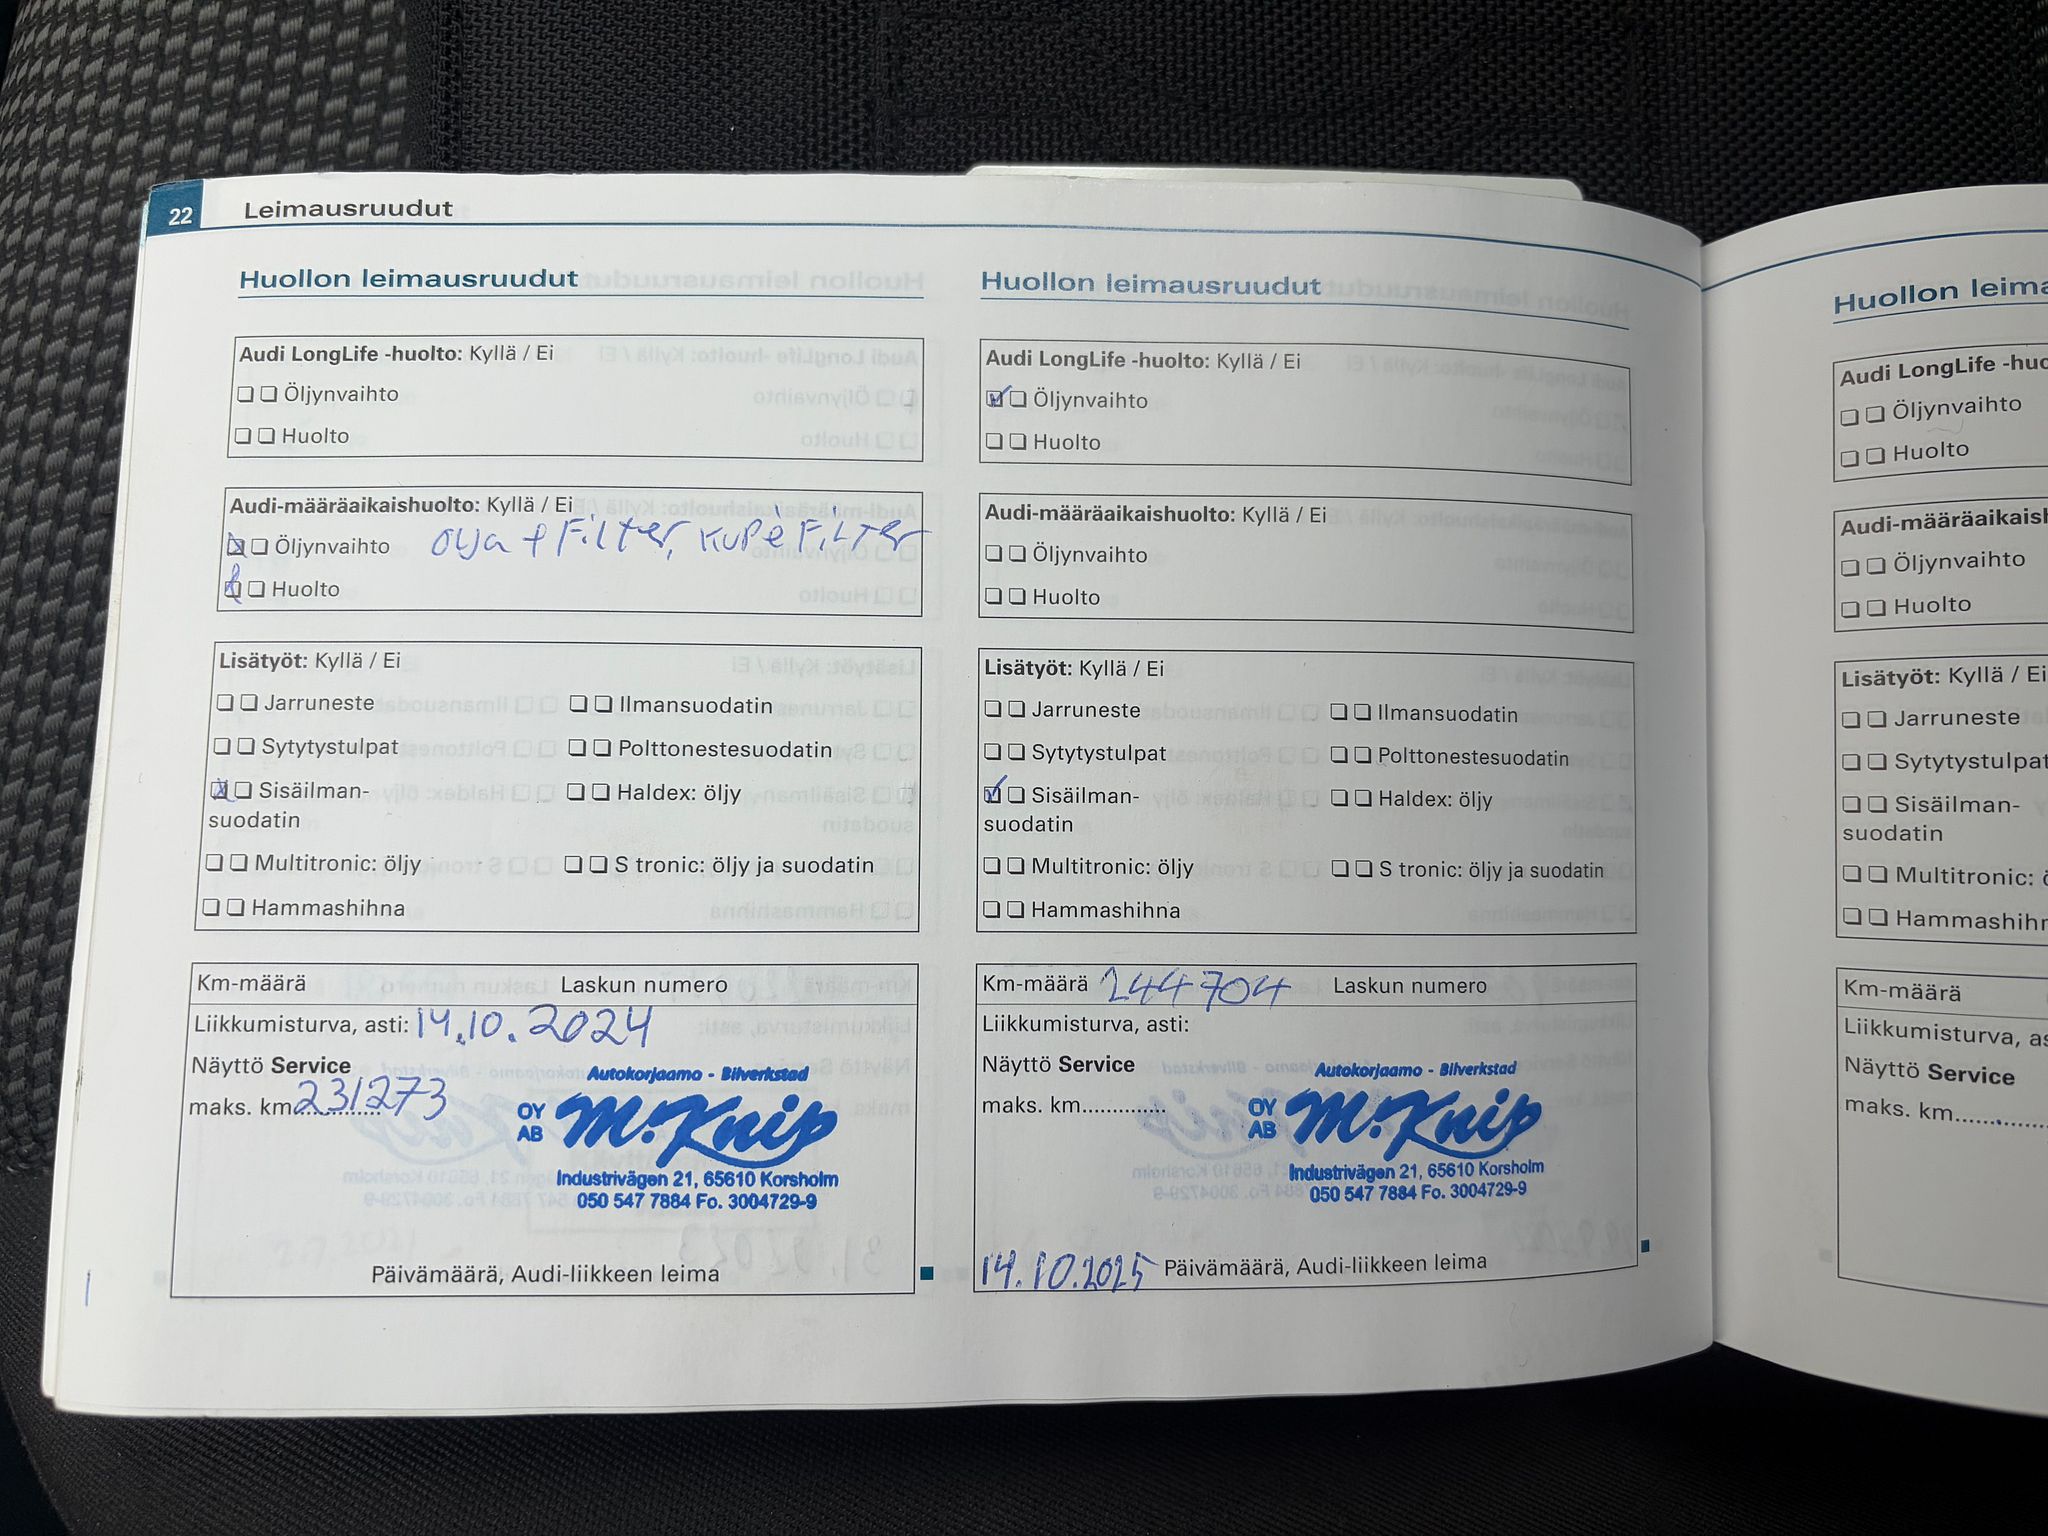 22 Leimausruudut
Huollon leimausruudut
Audi LongLife -huolto: Kyllä / Ei
Öljynvaihto
Huolto
Audi-määräaikaishuolto: Kyllä / Ei
Öljynvaihto Olja + Filter, Kupé Filter
Huolto
Lisätyöt: Kyllä / Ei
Jarruneste Ilmansuodatin
Sytytystulpat Polttonestesuodatin
Sisäilman- Haldex: öljy
suodatin
Multitronic: öljy S tronic: öljy ja suodatin
Hammashihna
Km-määrä Laskun numero
Liikkumisturva, asti: 14.10.2024
Näyttö Service
maks. km.............. 231273
Autokorjaamo - Bilverkstad
OY AB M.Knip
Industrivägen 21, 65610 Korsholm
050 547 7884 Fo. 3004729-9
Päivämäärä, Audi-liikkeen leima
Huollon leimausruudut
Audi LongLife -huolto: Kyllä / Ei
Öljynvaihto
Huolto
Audi-määräaikaishuolto: Kyllä / Ei
Öljynvaihto
Huolto
Lisätyöt: Kyllä / Ei
Jarruneste Ilmansuodatin
Sytytystulpat Polttonestesuodatin
Sisäilman- Haldex: öljy
suodatin
Multitronic: öljy S tronic: öljy ja suodatin
Hammashihna
Km-määrä 244704 Laskun numero
Liikkumisturva, asti:
Näyttö Service
maks. km..............
Autokorjaamo - Bilverkstad
OY AB M.Knip
Industrivägen 21, 65610 Korsholm
050 547 7884 Fo. 3004729-9
14.10.2025 Päivämäärä, Audi-liikkeen leima
Huollon leima
Audi LongLife -huo
Öljynvaihto
Huolto
Audi-määräaikaish
Öljynvaihto
Huolto
Lisätyöt: Kyllä / Ei
Jarruneste
Sytytystulpat
Sisäilman-
suodatin
Multitronic: ö
Hammashihn
Km-määrä
Liikkumisturva, as
Näyttö Service
maks. km..............